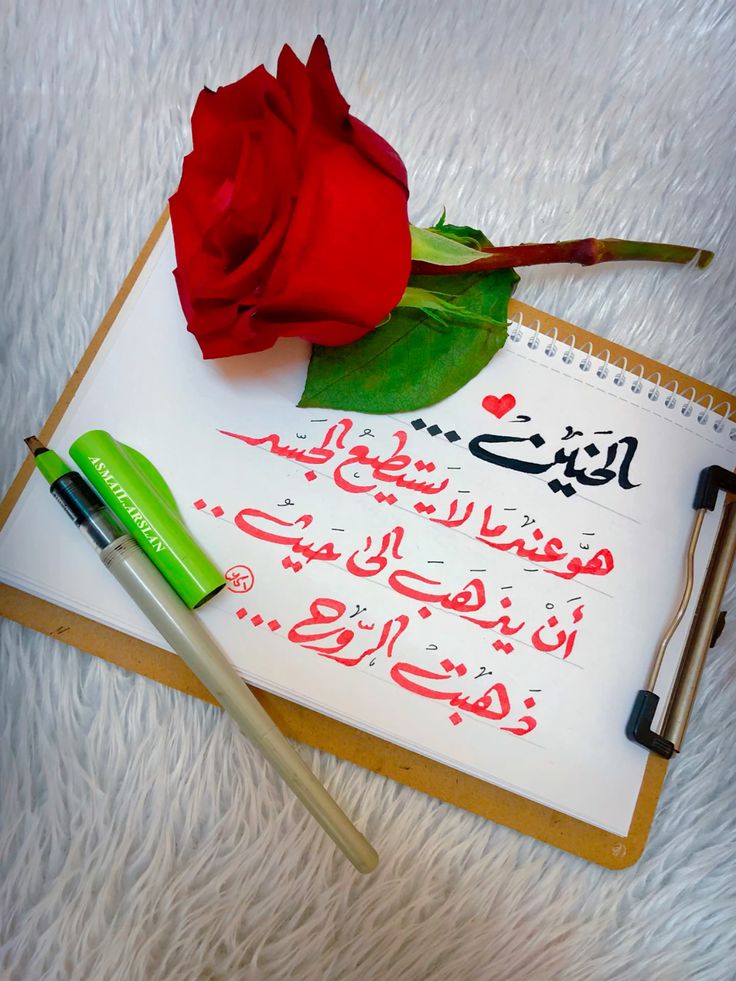 الحَنين ...
هوَ عِندمَا لاَ يَستطيعُ الجَسَد
أَنْ يذهَبَ الىٰ حَيثُ ..
ذَهبَتْ الرّوح ...
ASMAIL.ARSLAN